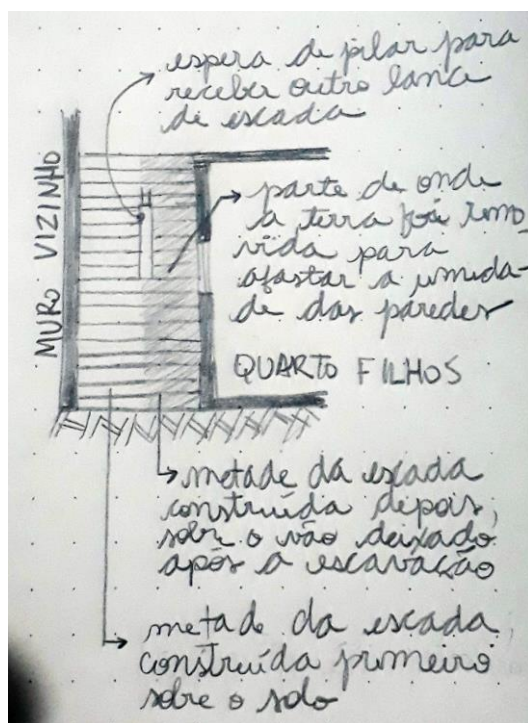 espera de pilar para
receber outro lance
de escada
MURO VIZINHO
parte de onde
a terra foi remo
vida para
afastar a umida-
de das paredes
QUARTO FILHOS
metade da escada
construída depois,
sobre o vão deixado
após a escavação
metade da escada
construída primeiro
sobre o solo